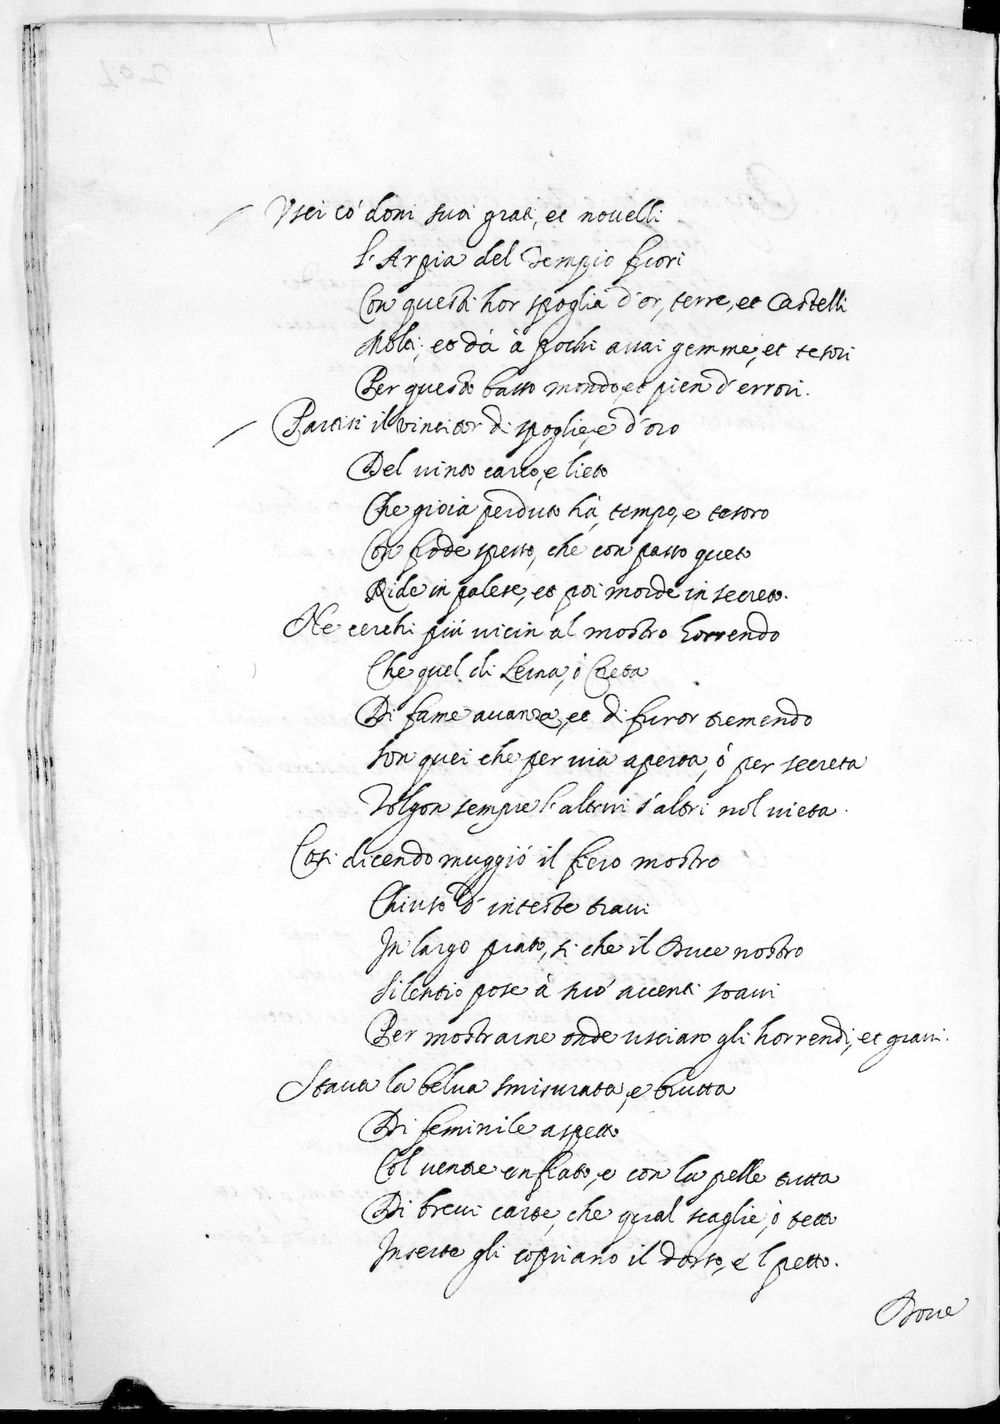 Usci co' doni suoi grati, et novelli
L'Arpia del Tempio fuori
Con questi hor spoglia d'or, terre, et Castelli
Molti, et dà à pochi assai gemme, et tesori
Per questo basso mondo, et pien d'errori.
Partissi il vincitor di spoglie, e d'oro
Del vinto carco, e lieto
Che gioia perduto hà, tempo, e tesoro
Con frode spesso, che con passo queto
Ride in palese, et poi morde in secreto.
Ne cerchi più vicin al mostro horrendo
Che quel di Lerna, ò Creta
Di fame avanza, et di furor tremendo
Son quei che per via aperta, ò per secreta
Tolgon sempre l'altrui s'altri nol vieta.
Cosi dicendo muggiò il fiero mostro
Chiuso d'inteste travi
In largo prato, si che il Duce nostro
Silentio pose à suo' accenti soavi
Per mostrarne onde usciano gli horrendi, et gravi.
Stava la belva smisurata, e brutta
Di feminile aspetto
Col ventre enfiato, e con la pelle tutta
Di brevi carte, che qual scaglie, ò tetto
Inserte gli copriano il dorso, e 'l petto.
Dove